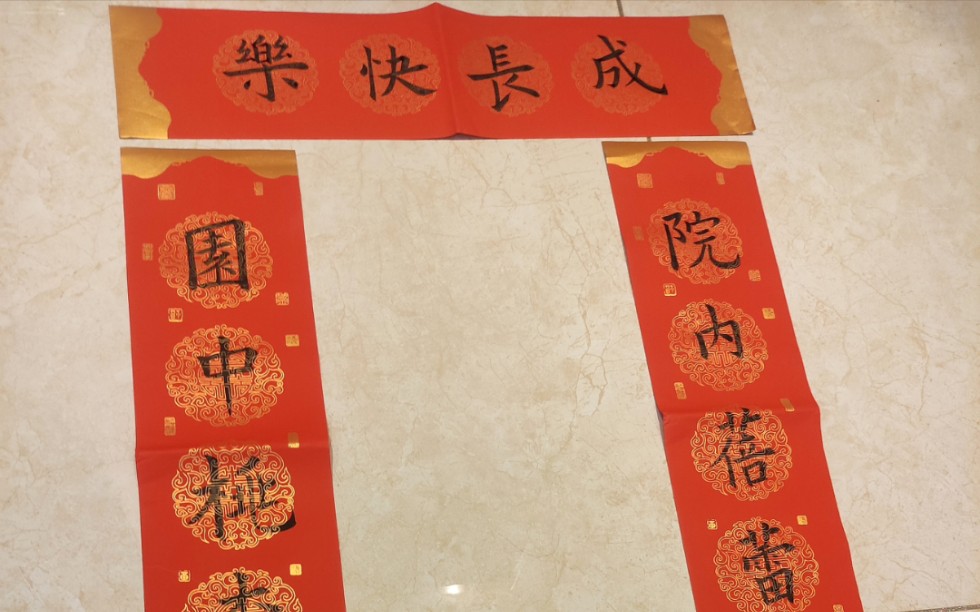 成長快樂
院内蓓蕾
園中桃